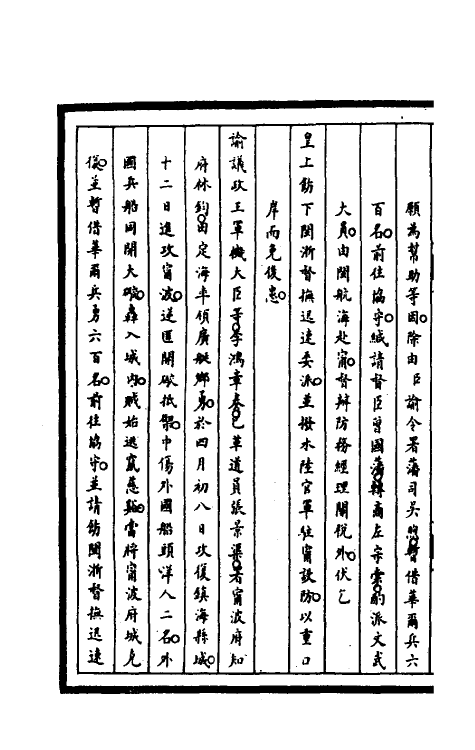 願為幫助等因除由臣諭令署藩司吳煦暫借華爾兵六
百名前往協守緘請督臣曾國藩轉商左宗棠酌派文武
大員由閩航海赴甯督辦防務經理關稅外伏乞
皇上飭下閩浙督撫迅速委派並撥水陸官軍駐甯設防以重口
岸而免後患
諭議政王軍機大臣等李鴻章奏已革道員張景渠署甯波府知
府林鈞由定海率領廣艇鄉勇於四月初八日攻復鎮海縣城
十二日進攻甯波逆匪開礮抵敵中傷外國船頭洋人二名外
國兵船同開大礮轟入城內賊始逃竄慈谿當將甯波府城克
復並暫借華爾兵勇六百名前往協守並請飭閩浙督撫迅速